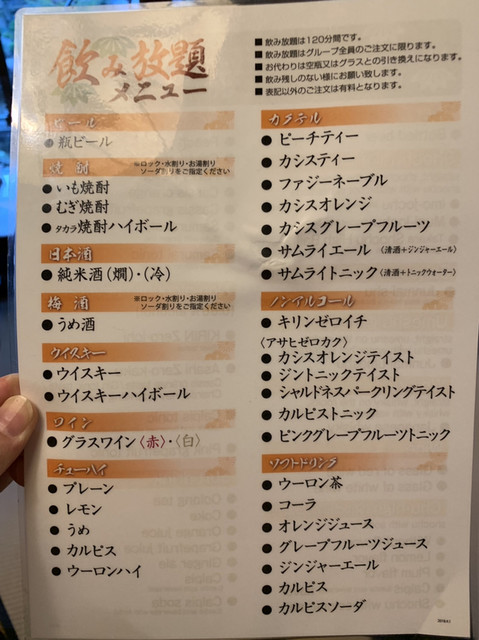 飲み放題
メニュー
■ 飲み放題は120分間です。
■ 飲み放題はグループ全員のご注文に限ります。
■ お代わりは空瓶又はグラスとの引き換えになります。
■ 飲み残しのない様にお願い致します。
■ 表記以外のご注文は有料となります。
ビール
● 瓶ビール
焼酎
※ロック・水割り・お湯割り
ソーダ割りをご指定ください
● いも焼酎
● むぎ焼酎
● タカラ焼酎ハイボール
日本酒
● 純米酒(燗)・(冷)
梅酒
※ロック・水割り・お湯割り
ソーダ割りをご指定ください
● うめ酒
ウイスキー
● ウイスキー
● ウイスキーハイボール
ワイン
● グラスワイン〈赤〉・〈白〉
チューハイ
● プレーン
● レモン
● うめ
● カルピス
● ウーロンハイ
カクテル
● ピーチティー
● カシスティー
● ファジーネーブル
● カシスオレンジ
● カシスグレープフルーツ
● サムライエール〈清酒+ジンジャーエール〉
● サムライトニック〈清酒+トニックウォーター〉
ノンアルコール
● キリンゼロイチ
〈アサヒゼロカク〉
● カシスオレンジテイスト
● ジントニックテイスト
● シャルドネスパークリングテイスト
● カルピストニック
● ピンクグレープフルーツトニック
ソフトドリンク
● ウーロン茶
● コーラ
● オレンジジュース
● グレープフルーツジュース
● ジンジャーエール
● カルピス
● カルピスソーダ